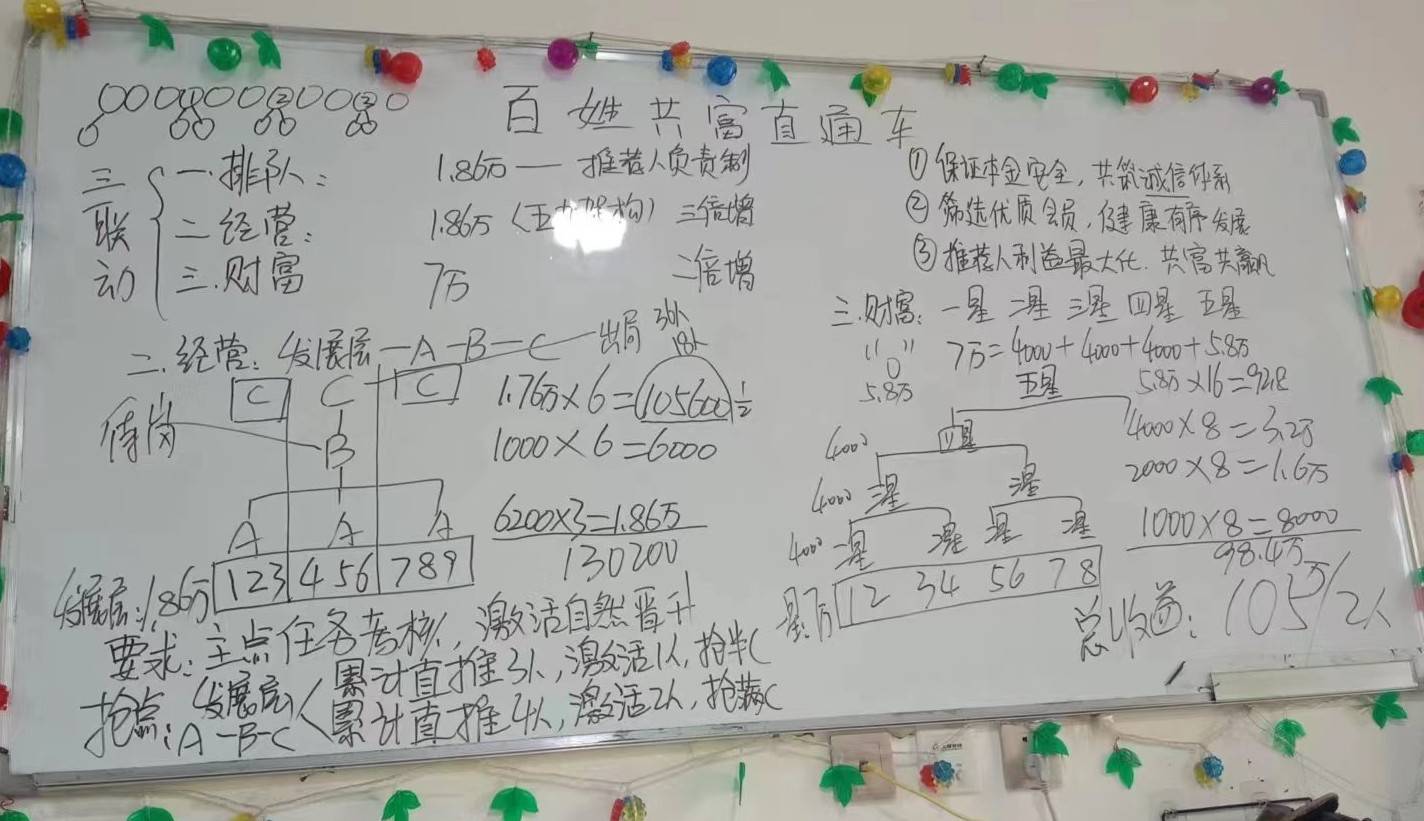 百姓共富直通车
三联动
一.排队: 1.86万 — 推荐人负责制
二经营: 1.86万 (五力架构) 三倍增
三.财富 7万 二倍增
① 保证本金安全, 共筑诚信体系
② 筛选优质会员, 健康有序发展
③ 推荐人利益最大化. 共富共赢
二.经营: 发展层—A—B—C—出局
36人
18人
C C C
待岗
B
A A A
发展层:1.86万 123 456 789
1.76万×6=105600 1/2
1000×6=6000
6200×3=1.86万
130200
要求: 主点任务考核, 激活自然晋升
抢点: 发展层
A-B-C
累计直推3人, 激活1人, 抢半C
累计直推4人, 激活2人, 抢满C
三.财富: 一星 二星 三星 四星 五星
"0" 7万=4000+4000+4000+5.8万
5.8万
五星
4000 四星
4000 三星 三星
4000 二星 二星 二星 二星
一星7万 12 34 56 78
5.8万×16=92.8
4000×8=3.2万
2000×8=1.6万
1000×8=8000
98.4万
总收益: 105万/2人